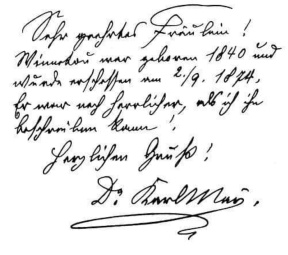 Sehr geehrtes Fräulein!
Winnetou war geboren 1840 und
wurde erschossen am 2./9. 1874.
Er war noch herrlicher, als ich ihn
beschreiben kann!
Herzlichen Gruß!
Dr. Karl May.